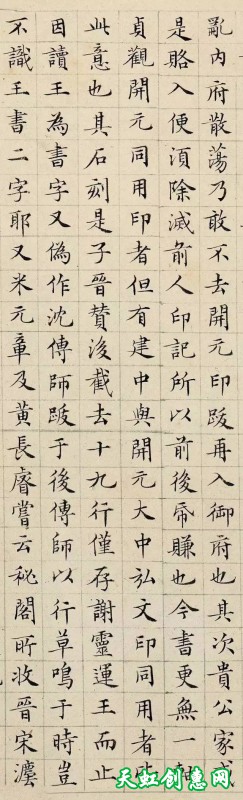 亂内府散蕩乃敢不去開元印跋再入御府也其次貴公家或
是賂入便湏除滅前人印記所以前後帋賺也今書更無一軸
貞觀開元同用印者但有建中與開元大中弘文印同用者皆
此意也其石刻是子晉賛後截去十九行僅存謝靈運王而止
因讀王為書字又偽作沈傳師跋于後傳師以行草鳴于時豈
不識王書二字耶又米元章及黃長睿嘗云秘閣所收晉宋灋
天虹创意网